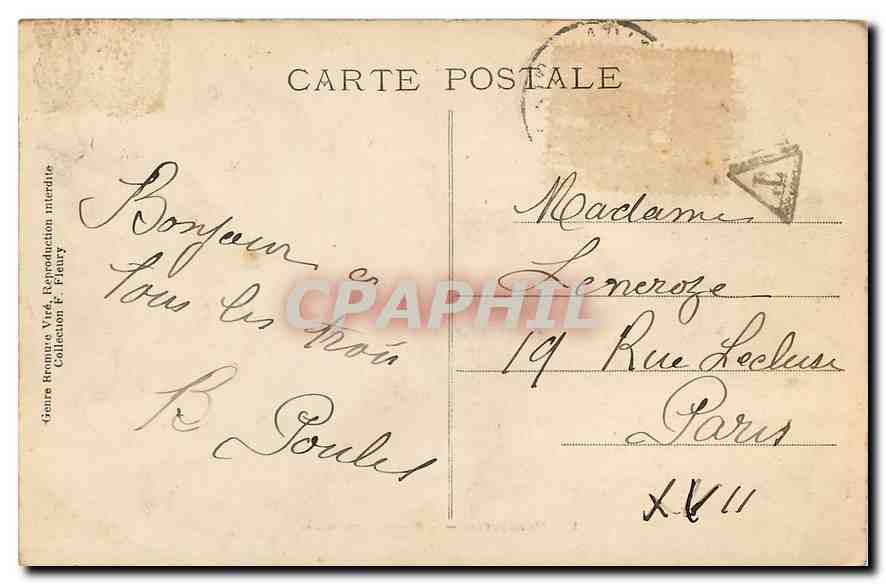 CARTE POSTALE
Genre Bromure Viré, Reproduction interdite
Collection F. Fleury
Bonjour a
tous les trois
B Poulet
T
Madame
Leneroze
19 Rue Lecluse
Paris
XVII
CPAPHIL